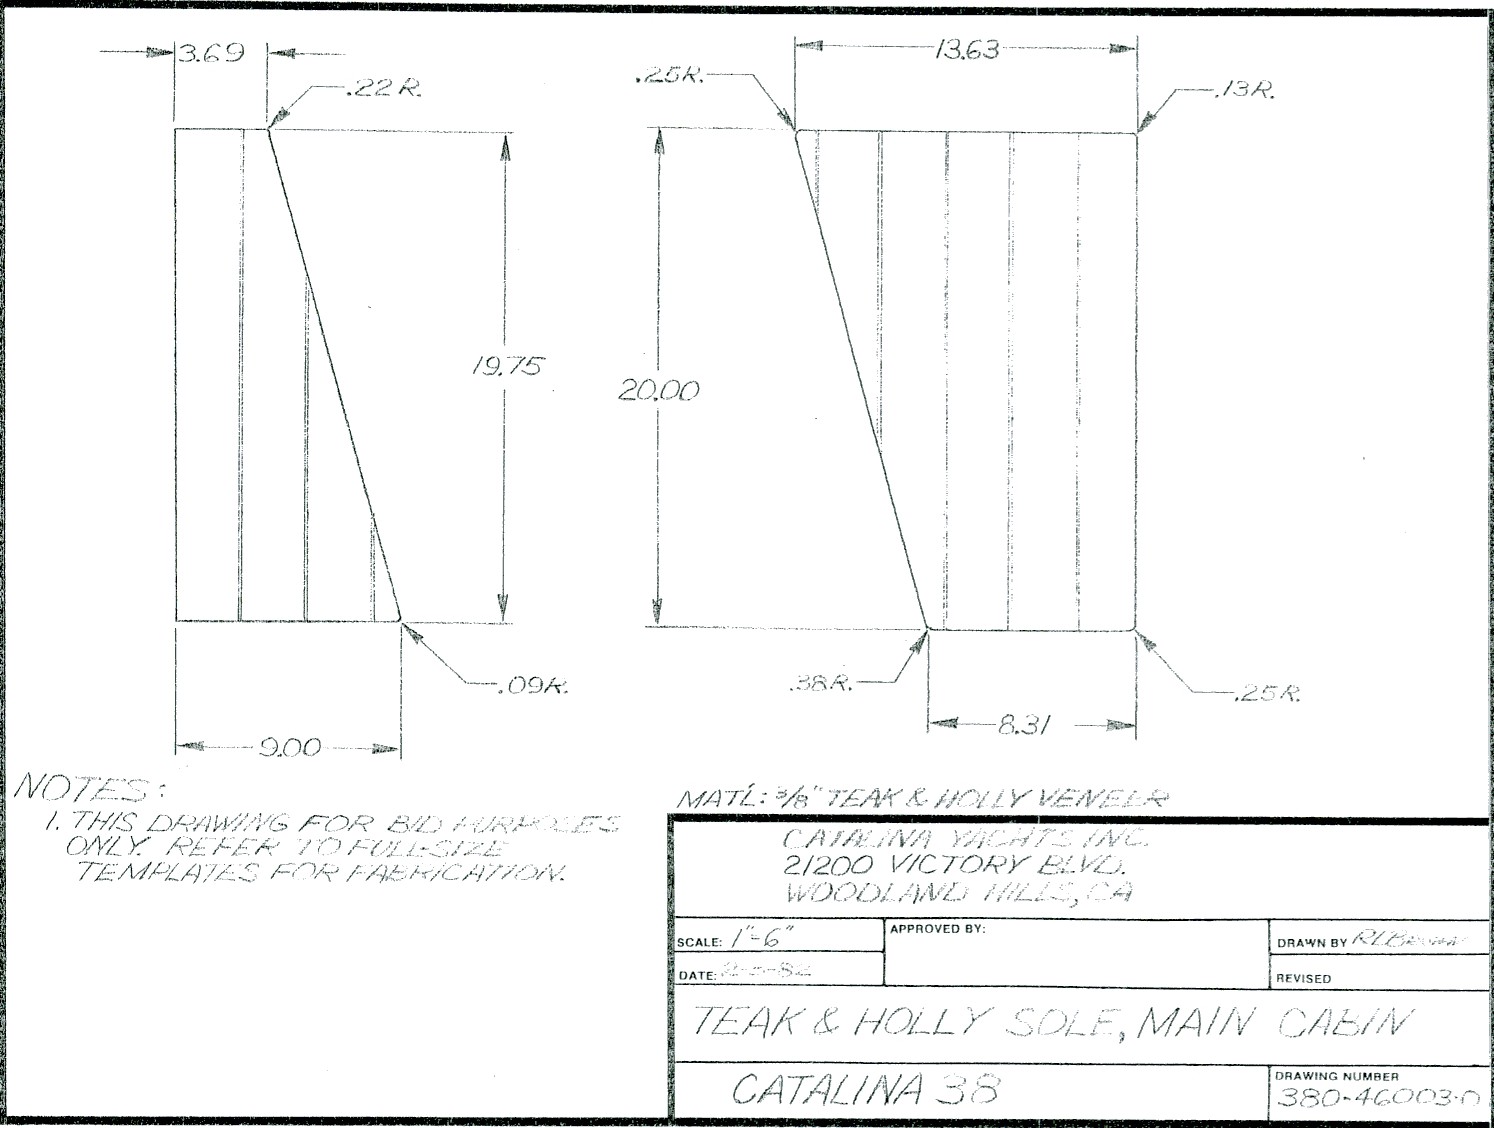 3.69
.22 R.
19.75
.09R.
9.00
.25R.
13.63
.13R.
20.00
.38R.
8.31
.25R.
NOTES:
1. THIS DRAWING FOR BID PURPOSES
ONLY. REFER TO FULL-SIZE
TEMPLATES FOR FABRICATION.
MAT'L: 3/8" TEAK & HOLLY VENEER
CATALINA YACHTS INC.
21200 VICTORY BLVD.
WOODLAND HILLS, CA
SCALE: 1"=6"
APPROVED BY:
DRAWN BY
DATE:
REVISED
TEAK & HOLLY SOLE, MAIN CABIN
CATALINA 38
DRAWING NUMBER
380-46003-0